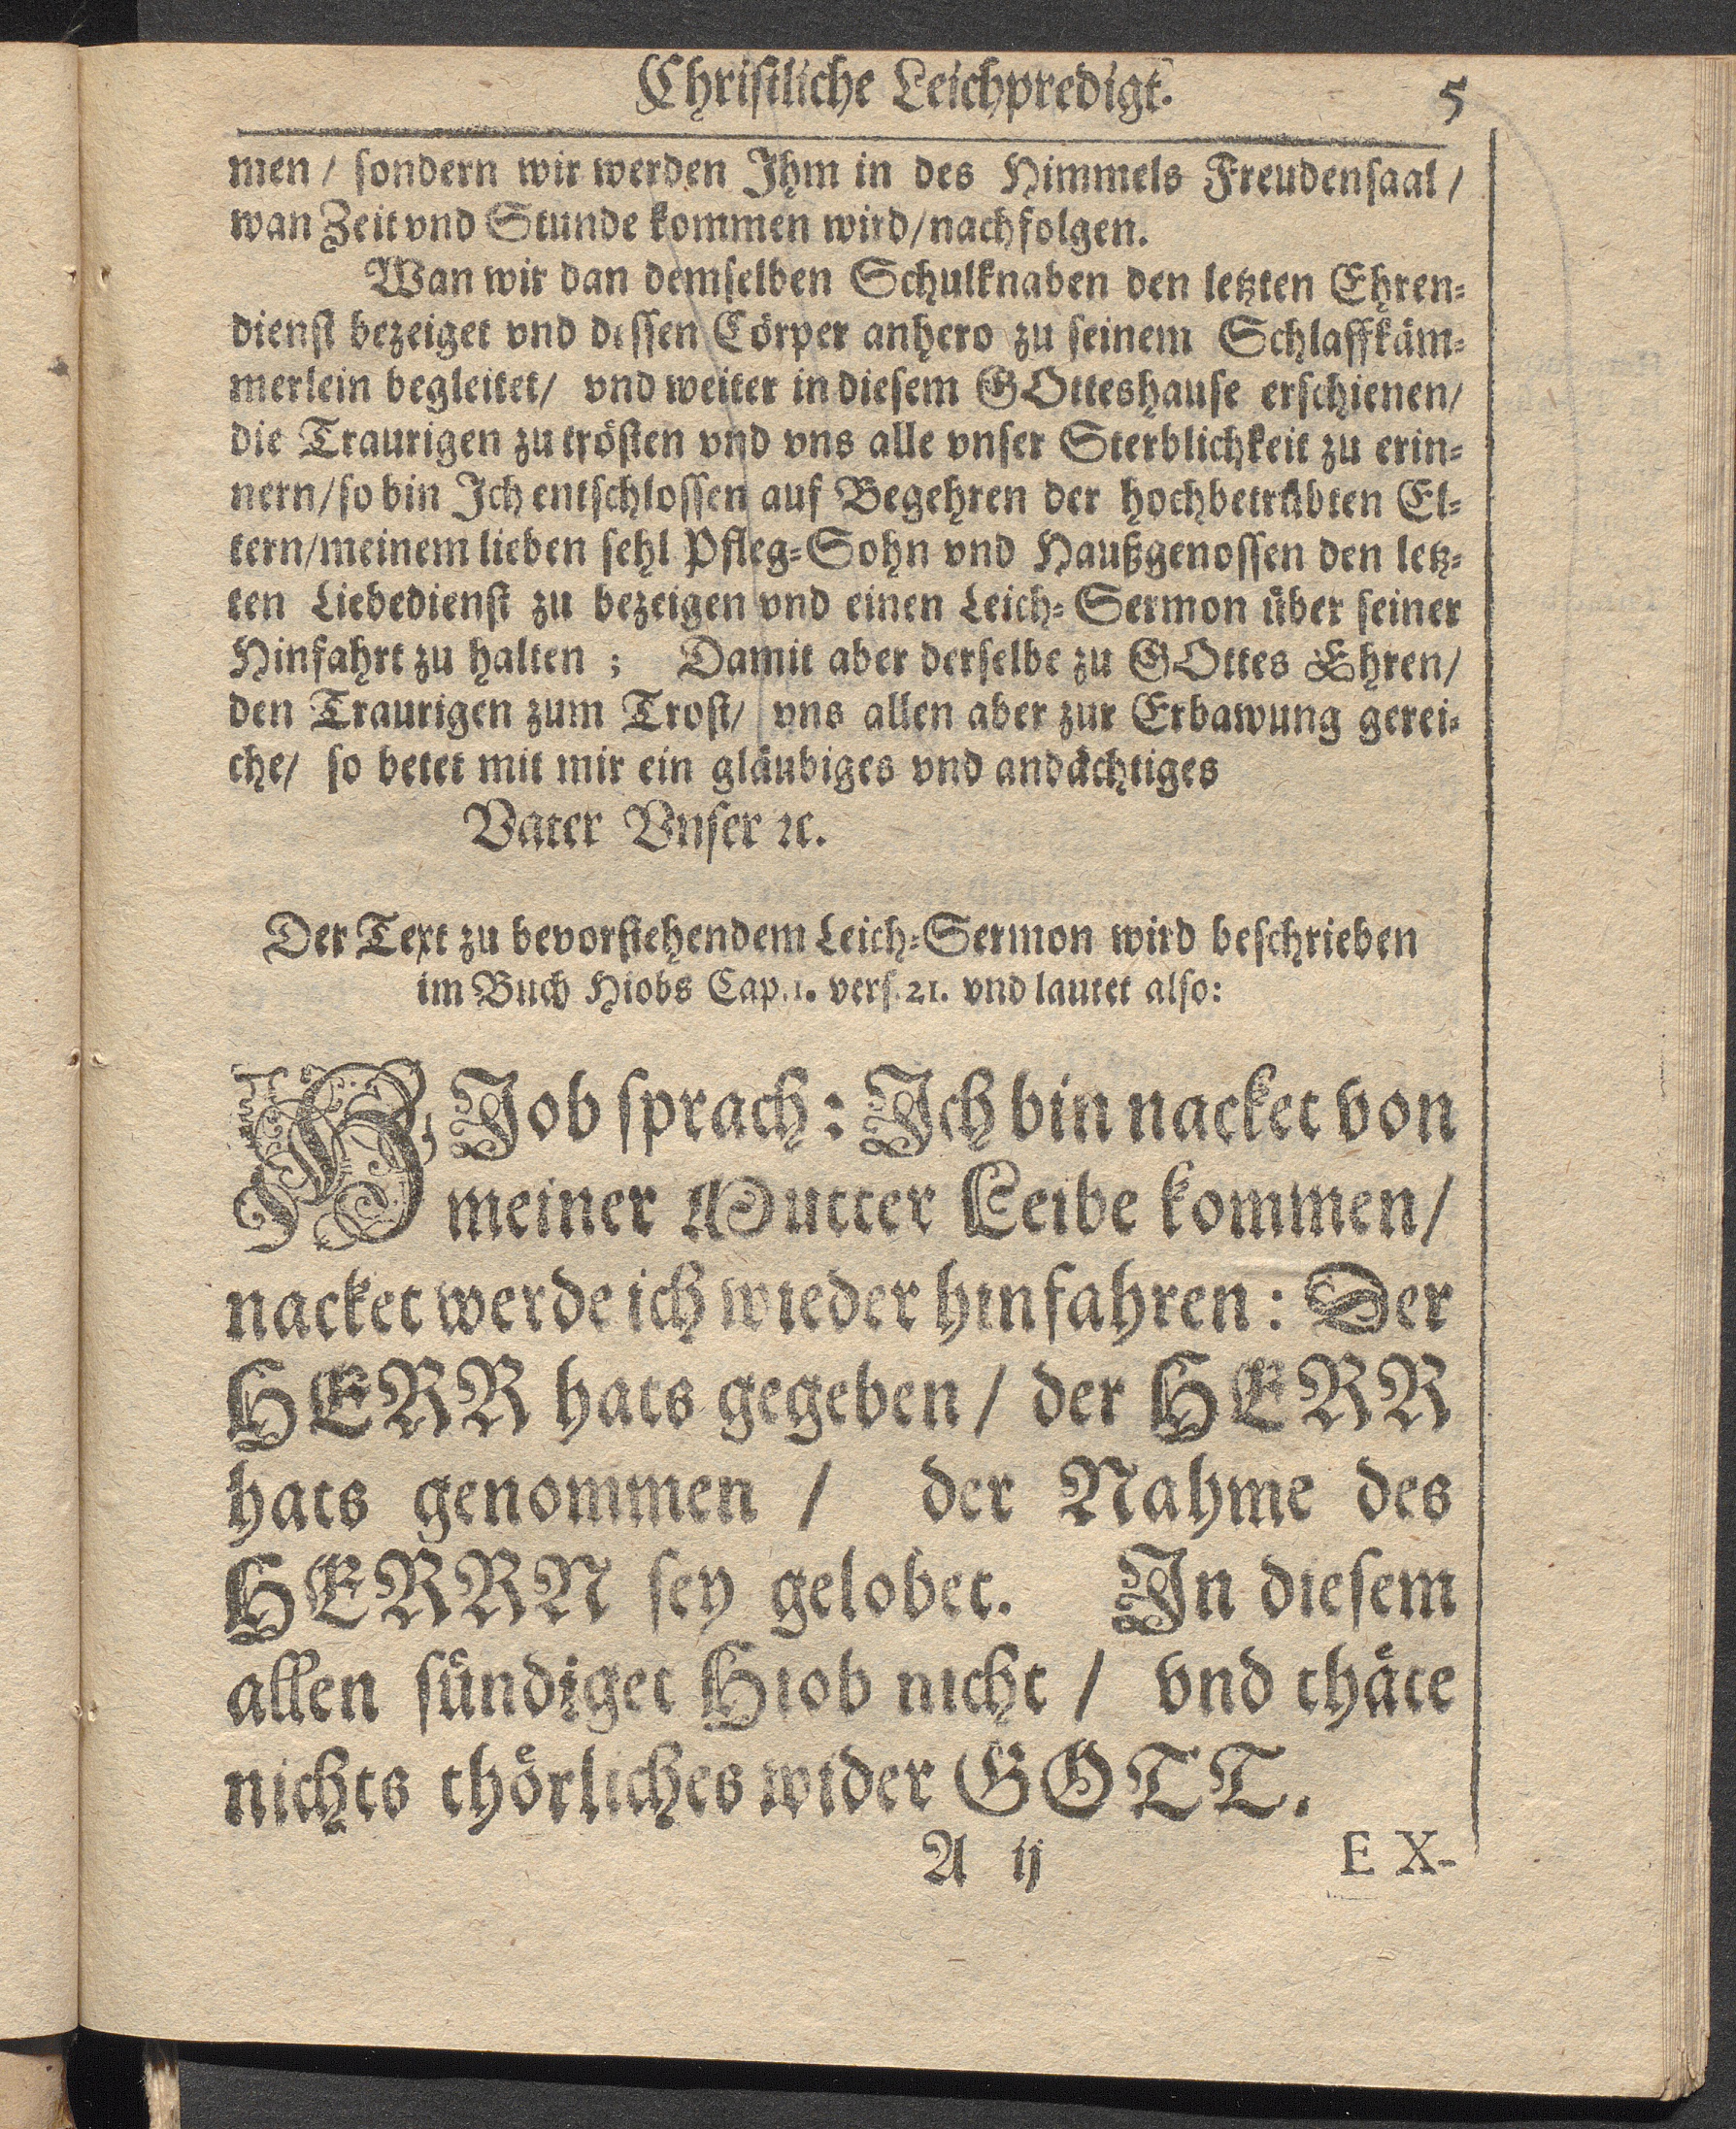 Christliche Leichpredigt. 5
men / sondern wir werden Ihm in des Himmels Freudensaal /
wan Zeit vnd Stunde kommen wird / nachfolgen.
Wan wir dan demselben Schulknaben den letzten Ehren-
dienst bezeiget vnd dessen Cörper anhero zu seinem Schlaffkäm-
merlein begleitet / vnd weiter in diesem GOtteshause erschienen /
die Traurigen zu trösten vnd vns alle vnser Sterblichkeit zu erin-
nern / so bin Ich entschlossen auf Begehren der hochbetrübten El-
tern / meinem lieben sehl Pfleg-Sohn vnd Haußgenossen den letz-
ten Liebedienst zu bezeigen vnd einen Leich-Sermon über seiner
Hinfahrt zu halten ; Damit aber derselbe zu GOttes Ehren /
den Traurigen zum Trost / vns allen aber zur Erbawung gerei-
che / so betet mit mir ein gläubiges vnd andächtiges
Vater Vnser ꝛc.
Der Text zu bevorstehendem Leich-Sermon wird beschrieben
im Buch Hiobs Cap. 1. vers. 21. vnd lautet also:
HIob sprach : Ich bin nacket von
meiner Mutter Leibe kommen /
nacket werde ich wieder hinfahren : Der
HERR hats gegeben / der HERR
hats genommen / der Nahme des
HERRN sey gelobet. In diesem
allen sündiget Hiob nicht / vnd thäte
nichts thörliches wider GOTT.
A ij EX-